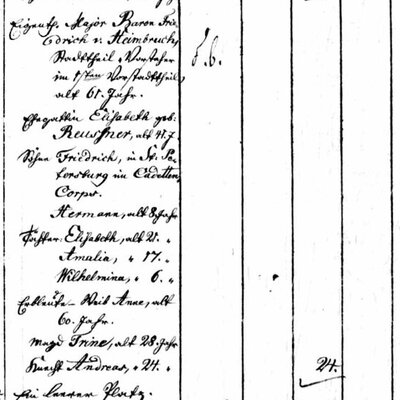 Eigenth. Major Baron Frie-
drich v. Heimbruch,
Stadttheil-Vorsteher
im 1sten Vorstadttheil,
alt 61. Jahr.
Ehegattin Elisabeth geb.
Reussner, alt 41. J.
Söhne Friedrich, in St. Pe-
tersburg im Cadetten
Corps.
Hermann, alt 8. Jahr
Töchter: Elisabeth, alt 21. "
Amalia, " 17. "
Wilhelmina, " 6. "
Erbleute - Weib Anne, alt
60. Jahr.
Magd Trine, alt 28. Jahr
Knecht Andreas, " 24. "
24.
Ein leerer Platz.